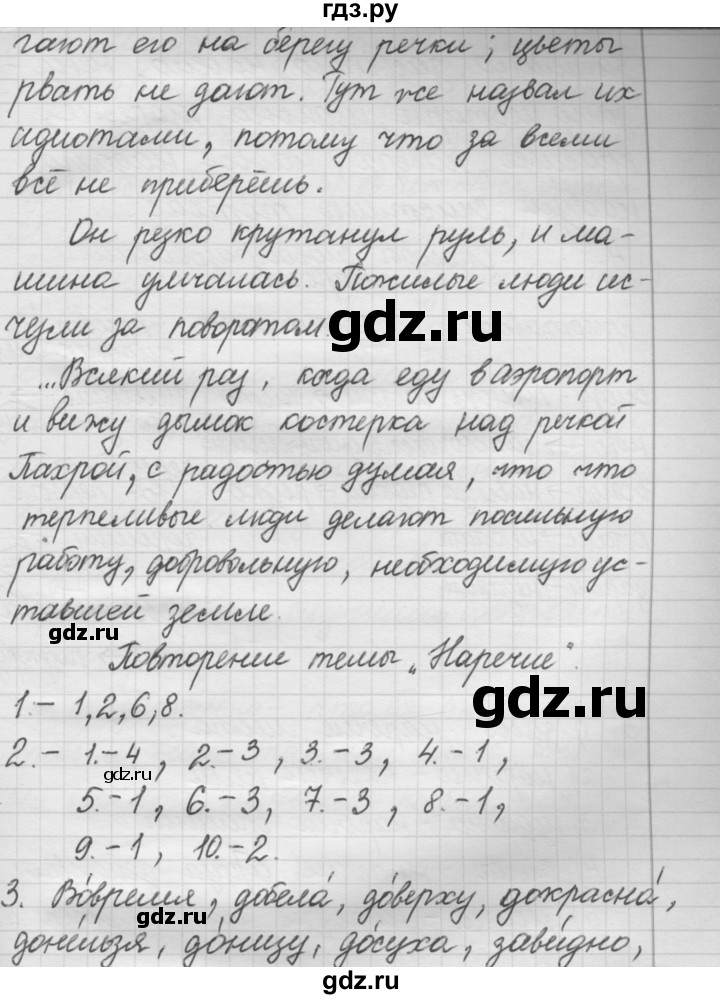 гдз.ру
гают его на берегу речки; цветы
рвать не дают. Тут же назвал их
идиотами, потому что за всеми
всё не приберёшь.
Он резко крутанул руль, и ма-
шина умчалась. Пожилые люди ис-
чезли за поворотом
gdz.ru
...Всякий раз, когда еду в аэропорт
и вижу дымок костерка над речкой
Пахрой, с радостью думая, что что
терпеливые люди делают посильную
работу, добровольную, необходимую ус-
тавшей земле.
gdz.ru
Повторение темы „Наречие“.
1.– 1,2,6,8.
gdz.ru
2.– 1.–4, 2.–3, 3.–3, 4.–1,
gdz.ru
5.–1, 6.–3, 7.–3, 8.–1,
9.–1, 10.–2.
3. Во́время, добела́, до́верху, докрасна́,
gdz.ru
доне́льзя, до́низу, до́суха, зави́дно,
gdz.ru
gdz.ru